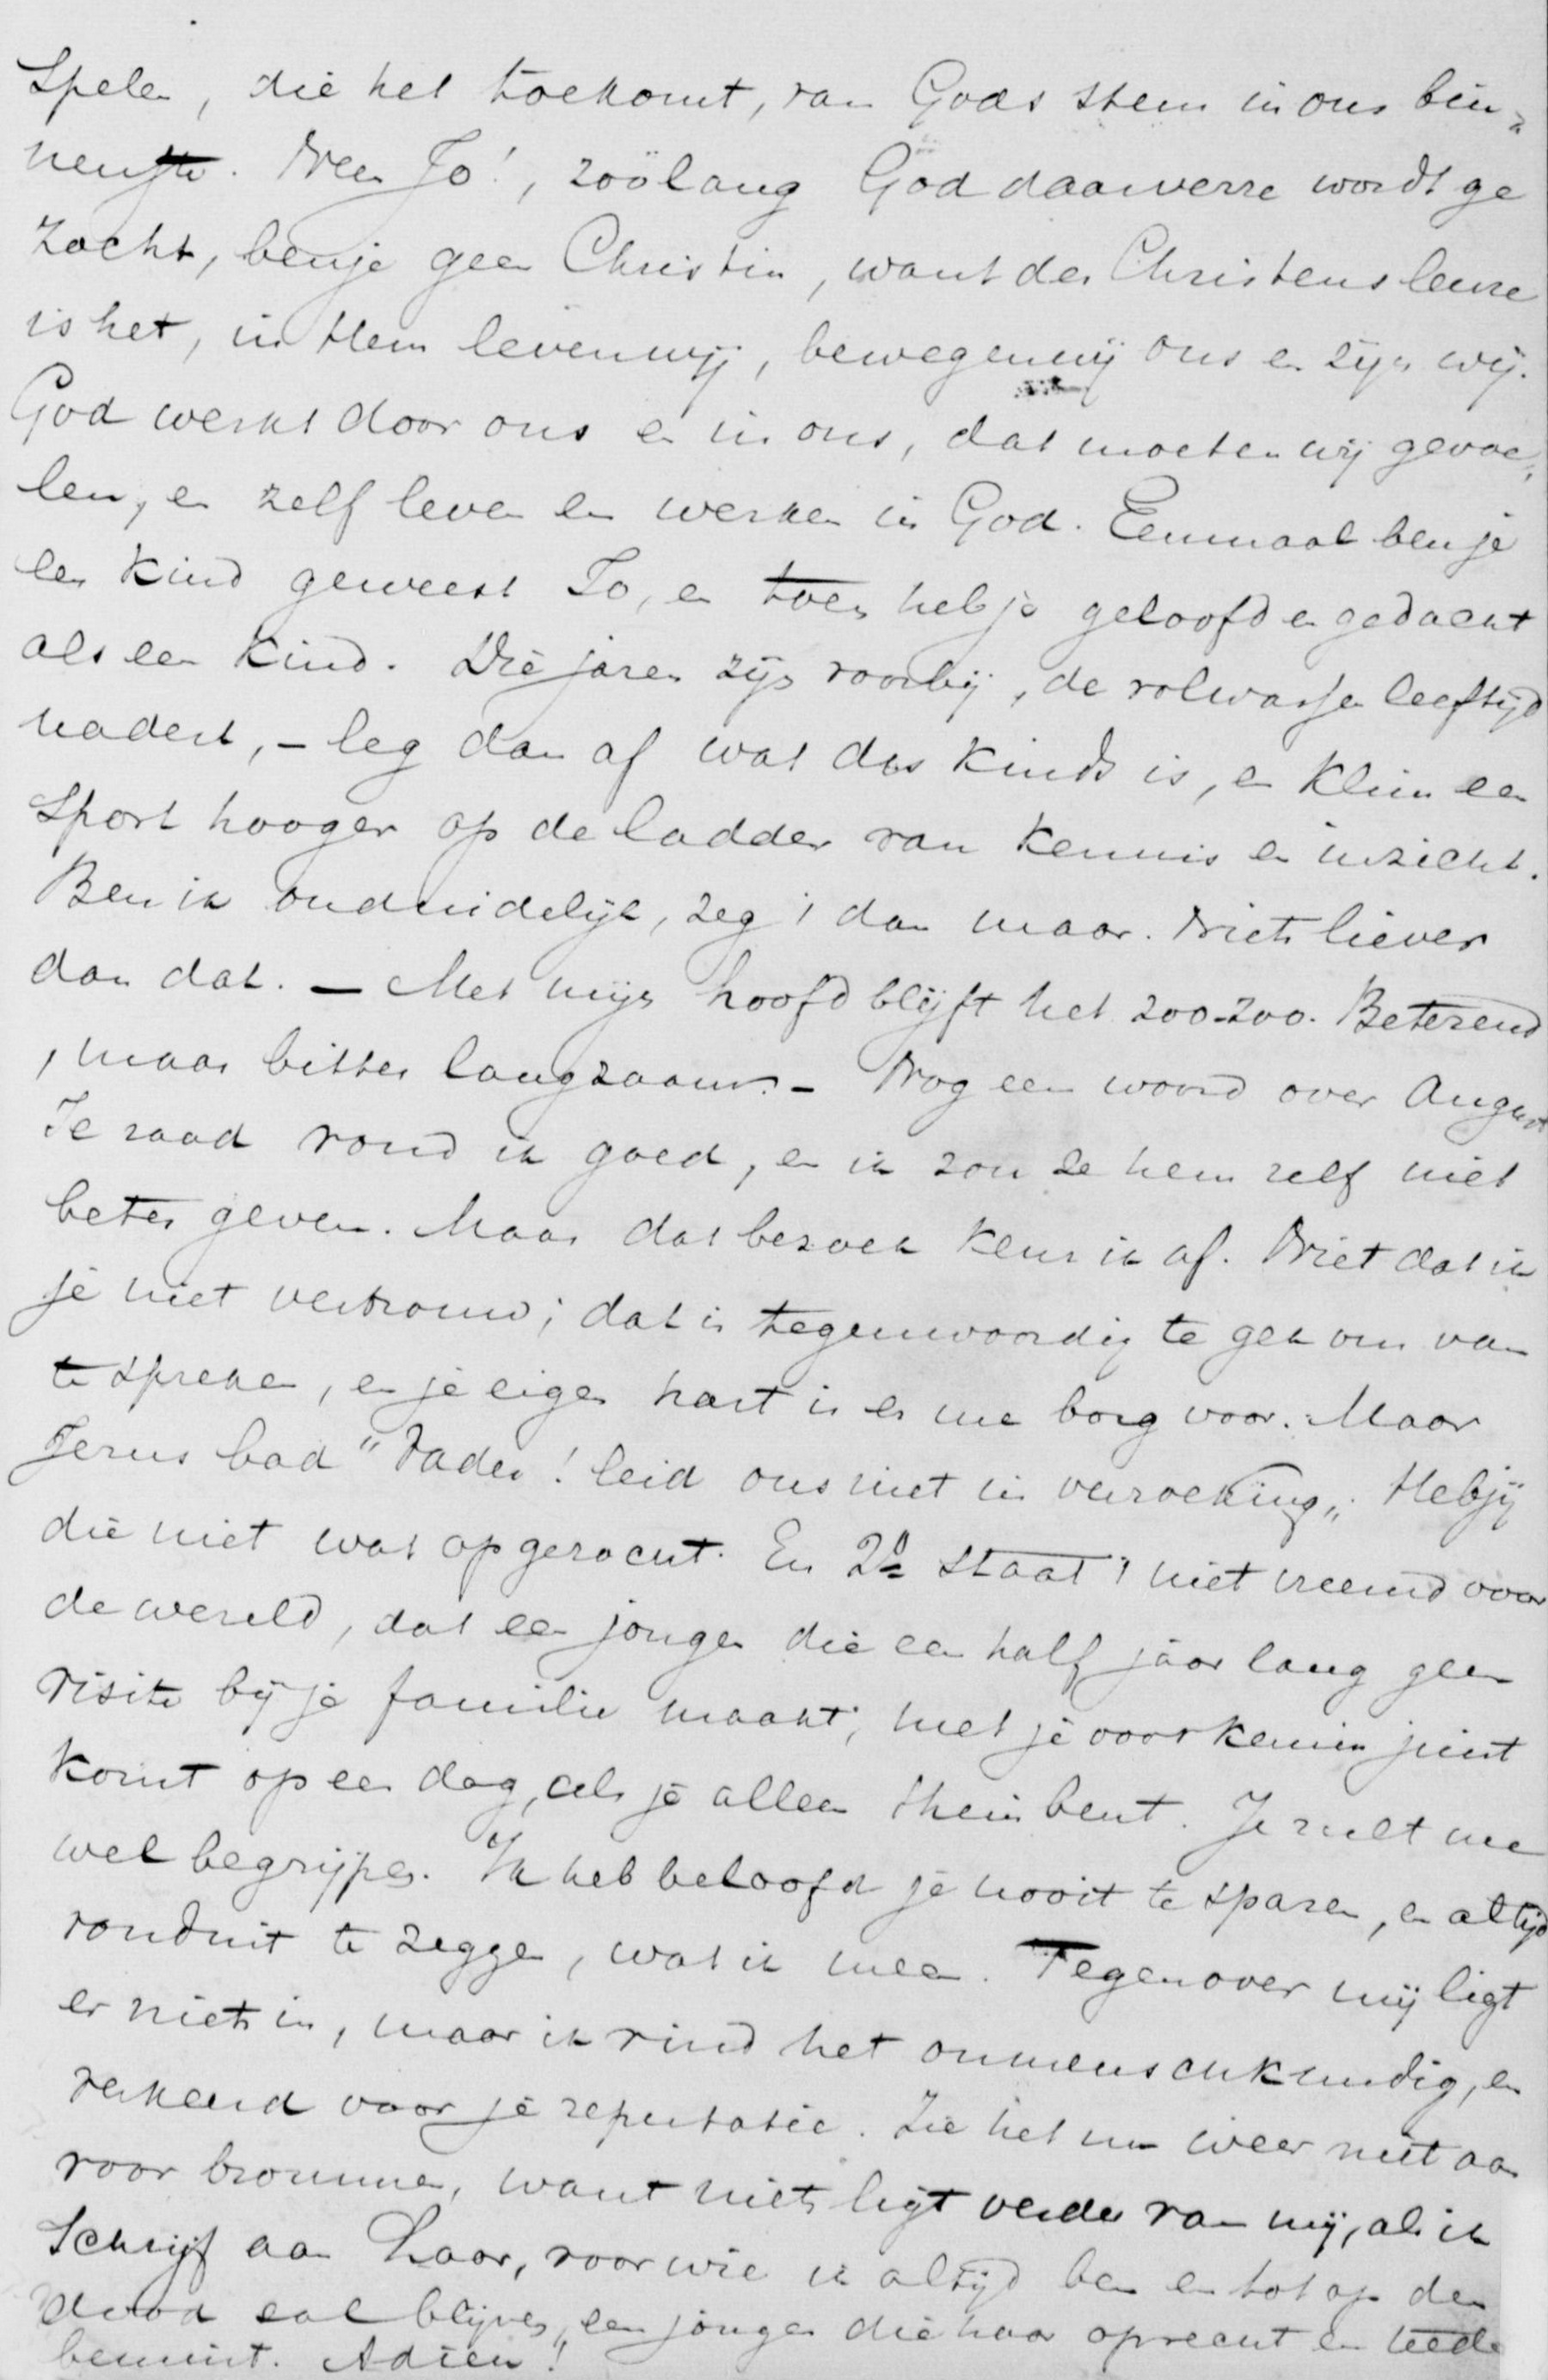 spelen, die het toekomt, van Gods stem in ons bin-
nenste. Neen Jo!, zoölang God daarverre wordt ge
zocht, benje geen Christin, want des Christens leuze
is het, in Hem leven wij, bewegen wij ons en zijn wij.
God werkt door ons en in ons, dat moeten wij gevoe-
len, en zelf leven en werken in God. Eenmaal ben je
een kind geweest Jo, en toen heb je geloofd en gedacht
als een kind. Die jaren zijn voorbij, de volwassen leeftijd
nadert, – leg dan af wat des kinds is, en klim een
sport hooger op de ladder van kennis en inzicht.
Ben ik onduidelijk, zeg 't dan maar. Niets liever
dan dat. — Met mijn hoofd blijft het zoo-zoo. Beterend
, maar bitter langzaam. – Nog een woord over August
Je raad vond ik goed, en ik zou ze hem zelf niet
beter geven. Maar dat bezoek keur ik af. Niet dat ik
je niet vertrouw; dat is tegenwoordig te gek om van
te spreken, en je eigen hart is er me borg voor. Maar
Jezus bad "Vader! leid ons niet in verzoeking„. Heb jij
die niet wat opgezocht. En 2de staat 't niet vreemd voor
de wereld, dat een jongen die een half jaar lang geen
visite bij je familie maakt, met je voorkennis juist
komt op een dag, als je alleen thuis bent. Je zult me
wel begrijpen. Ik heb beloofd je nooit te sparen, en altijd
ronduit te zeggen, wat ik meen. Tegenover mij ligt
er niets in, maar ik vind het onmenschkundig, en
verkeerd voor je reputatie. Zie het nu weer niet aan
voor brommen, want niets ligt verder van mij, als ik
schrijf aan Haar, voor wie ik altijd ben en tot op den
dood zal blijven, een jongen die haar oprecht en teeder
bemint. Adieu!